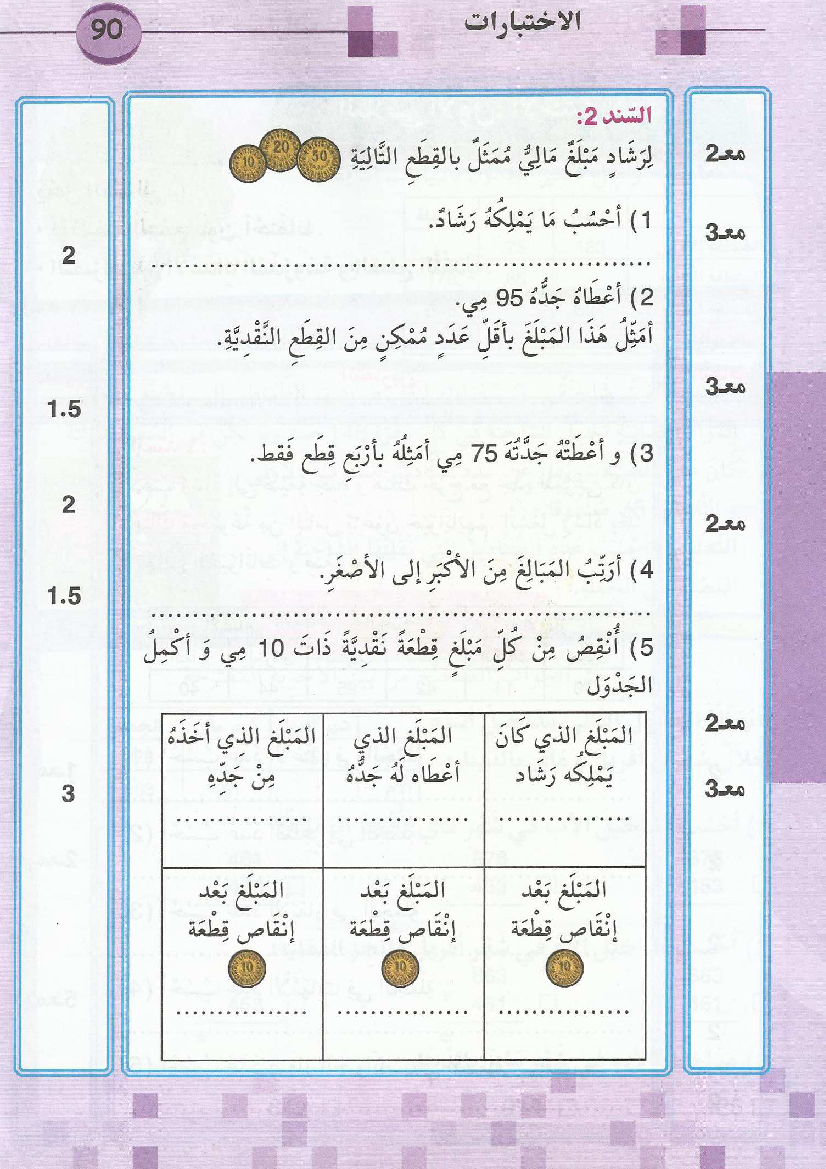 الاختبارات
90
السّند 2:
معـ2
لِرَشَادٍ مَبْلَغٌ مَالِيُّ مُمَثَلٌ بالقِطَعِ التَّالِيَةِ 50 20 10
1) أحْسُبُ مَا يَمْلِكُهُ رَشَادٌ.
معـ3
2
2) أعْطَاهُ جَدُّهُ 95 مِي.
أمَثِّلُ هَذَا المَبْلَغَ بأقَلِّ عَدَدٍ مُمْكِنٍ مِنَ القِطَعِ النَّقْدِيَّةِ.
معـ3
1.5
3) و أعْطَتْهُ جَدَّتُهَ 75 مِي أمَثِلُهُ بأرْبَعِ قِطَع فَقط.
2
معـ2
4) أرَتِّبُ المَبَالِغَ مِنَ الأكْبَرِ إلى الأصْغَرِ.
1.5
5) أُنْقِصُ مِنْ كُلِّ مَبْلَغٍ قِطْعَةً نَقْدِيَّةً ذَاتَ 10 مِي وَ أكْمِلُ
الجَدْوَل
معـ2
معـ3
3
المَبْلَغ الذي كَانَ
يَمْلِكُه رَشَاد
المَبْلَغ الذي
أعْطَاه لَهُ جَدُّهُ
المَبْلَغ الذِي أخَذَهُ
مِنْ جَدِّهِ
المَبْلَغ بَعْد
إنْقَاص قِطْعَة
10
المَبْلَغ بَعْد
إنْقَاص قِطْعَة
10
المَبْلَغ بَعْد
إنْقَاص قِطْعَة
10